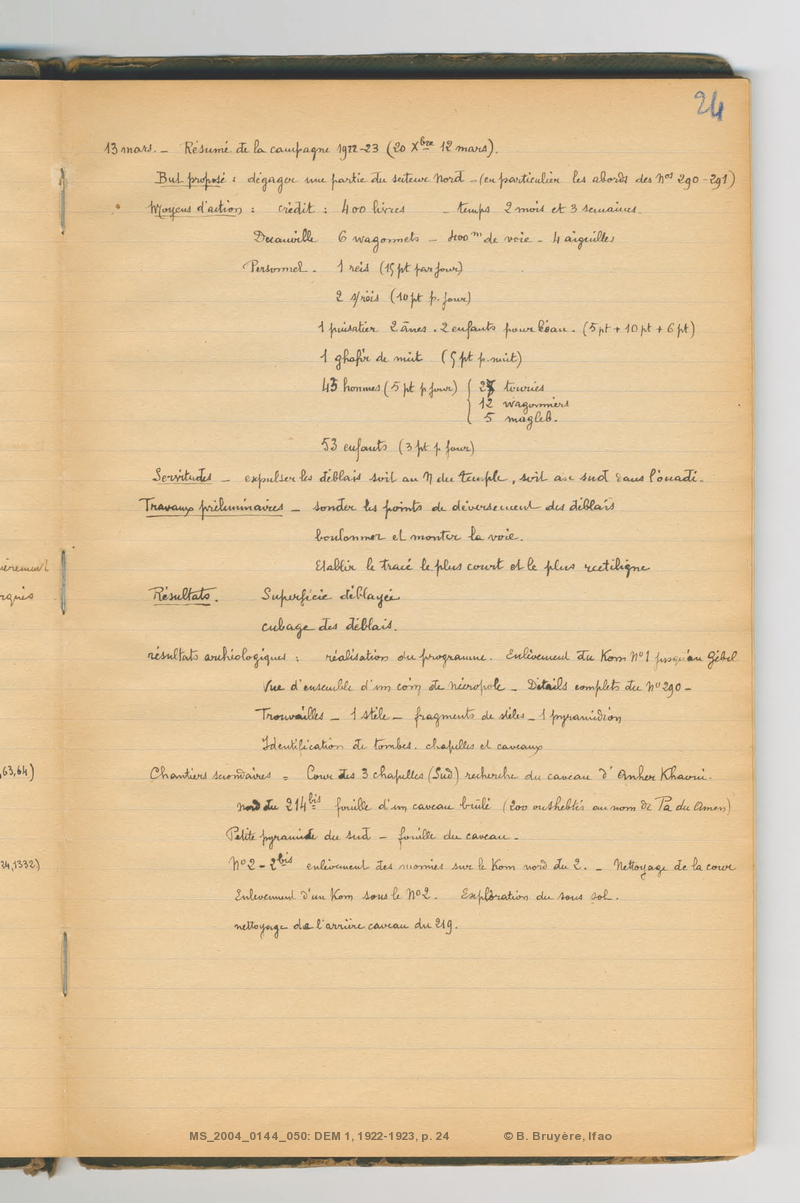 24
13 mars. _ Résumé de la campagne 1922-23 (20 Xbre 12 mars).
But proposé : dégager une partie du secteur Nord _ (en particulier les abords des Nos 290-291)
Moyens d'action : crédit : 400 livres _ temps 2 mois et 3 semaines.
Decauville 6 wagonnets _ 400 m de voie _ 4 aiguilles
Personnel. 1 reis (15 pt par jour)
2 s/reis (10 pt p. jour)
1 puisatier 2 ânes. 2 enfants pour l'eau. (5 pt + 10 pt + 6 pt)
1 ghafir de nuit (5 pt p. nuit)
45 hommes (5 pt p jour) { 28 touries
12 wagonniers
5 magleb.
53 enfants (3 pt p. jour)
Servitudes _ expulser les déblais soit au N du temple, soit au sud dans l'ouadi.
Travaux préliminaires _ sonder les points de déversement des déblais
boulonner et monter la voie.
Etablir le tracé le plus court et le plus rectiligne
ièrement
rqués
Résultats. Superficie déblayée
cubage des déblais.
résultats archéologiques : réalisation du programme. Enlèvement du Kom No 1 jusqu'au Gébel
Vue d'ensemble d'un coin de nécropole _ Détails complets du No 290 _
Trouvailles _ 1 stèle _ fragments de stèles _ 1 pyramidion
Identification de tombes. chapelles et caveaux
,63,64)
Chantiers secondaires = Cour des 3 chapelles (Sud) recherche du caveau d'Anher Khaoui.
Nord du 214 bis fouille d'un caveau brûlé (200 oushebtis au nom de Pa du Amen)
Petite pyramide du sud _ fouille du caveau _
34,1332)
No 2 - 2 bis enlèvement des momies sur le Kom nord du 2. _ Nettoyage de la cour
Enlèvement d'un Kom sous le No 2. Exploration du sous sol.
nettoyage de l'arrière caveau du 219.
MS_2004_0144_050: DEM 1, 1922-1923, p. 24 © B. Bruyère, Ifao